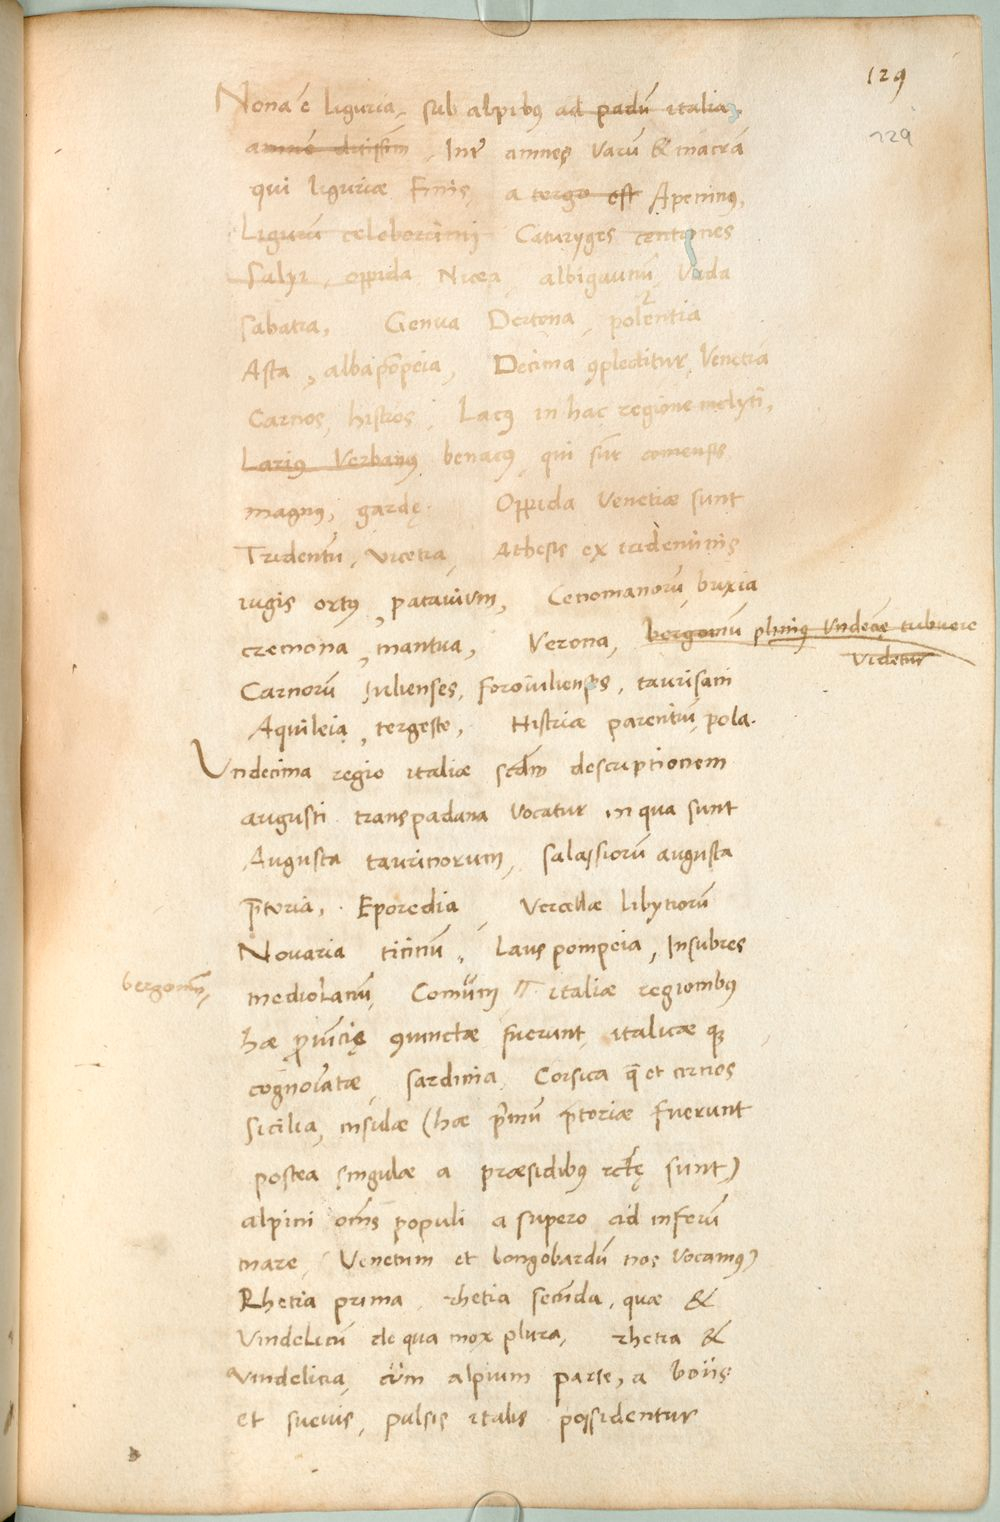 129
129
Nona ē liguria, sub alpibus ad padū italiae
amnē ditissim̄. Int̄ amnes Varū & macrā
qui liguriæ finis, a tergo est Apeninus,
Ligurū celeberrimi Caturyges centones
Salyi, oppida Nicea, albigaunū, Vada
sabatia, Genua Dertona, polentia
Asta, albapōpeia, Decima 9plectitur Venetiā
Carnos, histros. Lacus in hac regione inclyti,
Larius Verbanus benacus, qui sūt comensis
magnus, gardę. Oppida Venetiæ sunt
Tridentū, vicetia, Athesis ex tridentinis
iugis ortus, patauium, Cenomanorū, brixia
cremona, mantua, Verona, bergomū plinius Vndecię tribuere
videtur
Carnorū Iulienses, foroiulienses, taurisani
Aquileia, tergeste, Histriæ parentiū, pola.
Vndecima regio italiæ scdm̄ descriptionem
augusti transpadana vocatur in qua sunt
Augusta taurinorum, salassiorū augusta
p̄toria, Eporedia, Vercellæ libytiorū
Novaria ticinū, Laus pompeia, Insubres
bergomū,
mediolanū, Comum italiæ regionibus
hæ ꝓuīcię 9iunctæ fuerunt, italicæ qꝫ
cognoīatæ, sardinia, Corsica q̄ et cirnos
Sicilia, insulæ (hæ p̄mū p̄toriæ fuerunt
postea singulæ a præsidibus rctę sunt)
alpini om̄s populi a supero ad inferū
mare, (Venetum et longobardū nos vocamus)
Rhetia prima, rhetia secūda, quæ &
Vindelicū de qua mox plura, rhetia &
Vindelicia, cum alpium parte, a boiis
et sueuis, pulsis italis possidentur